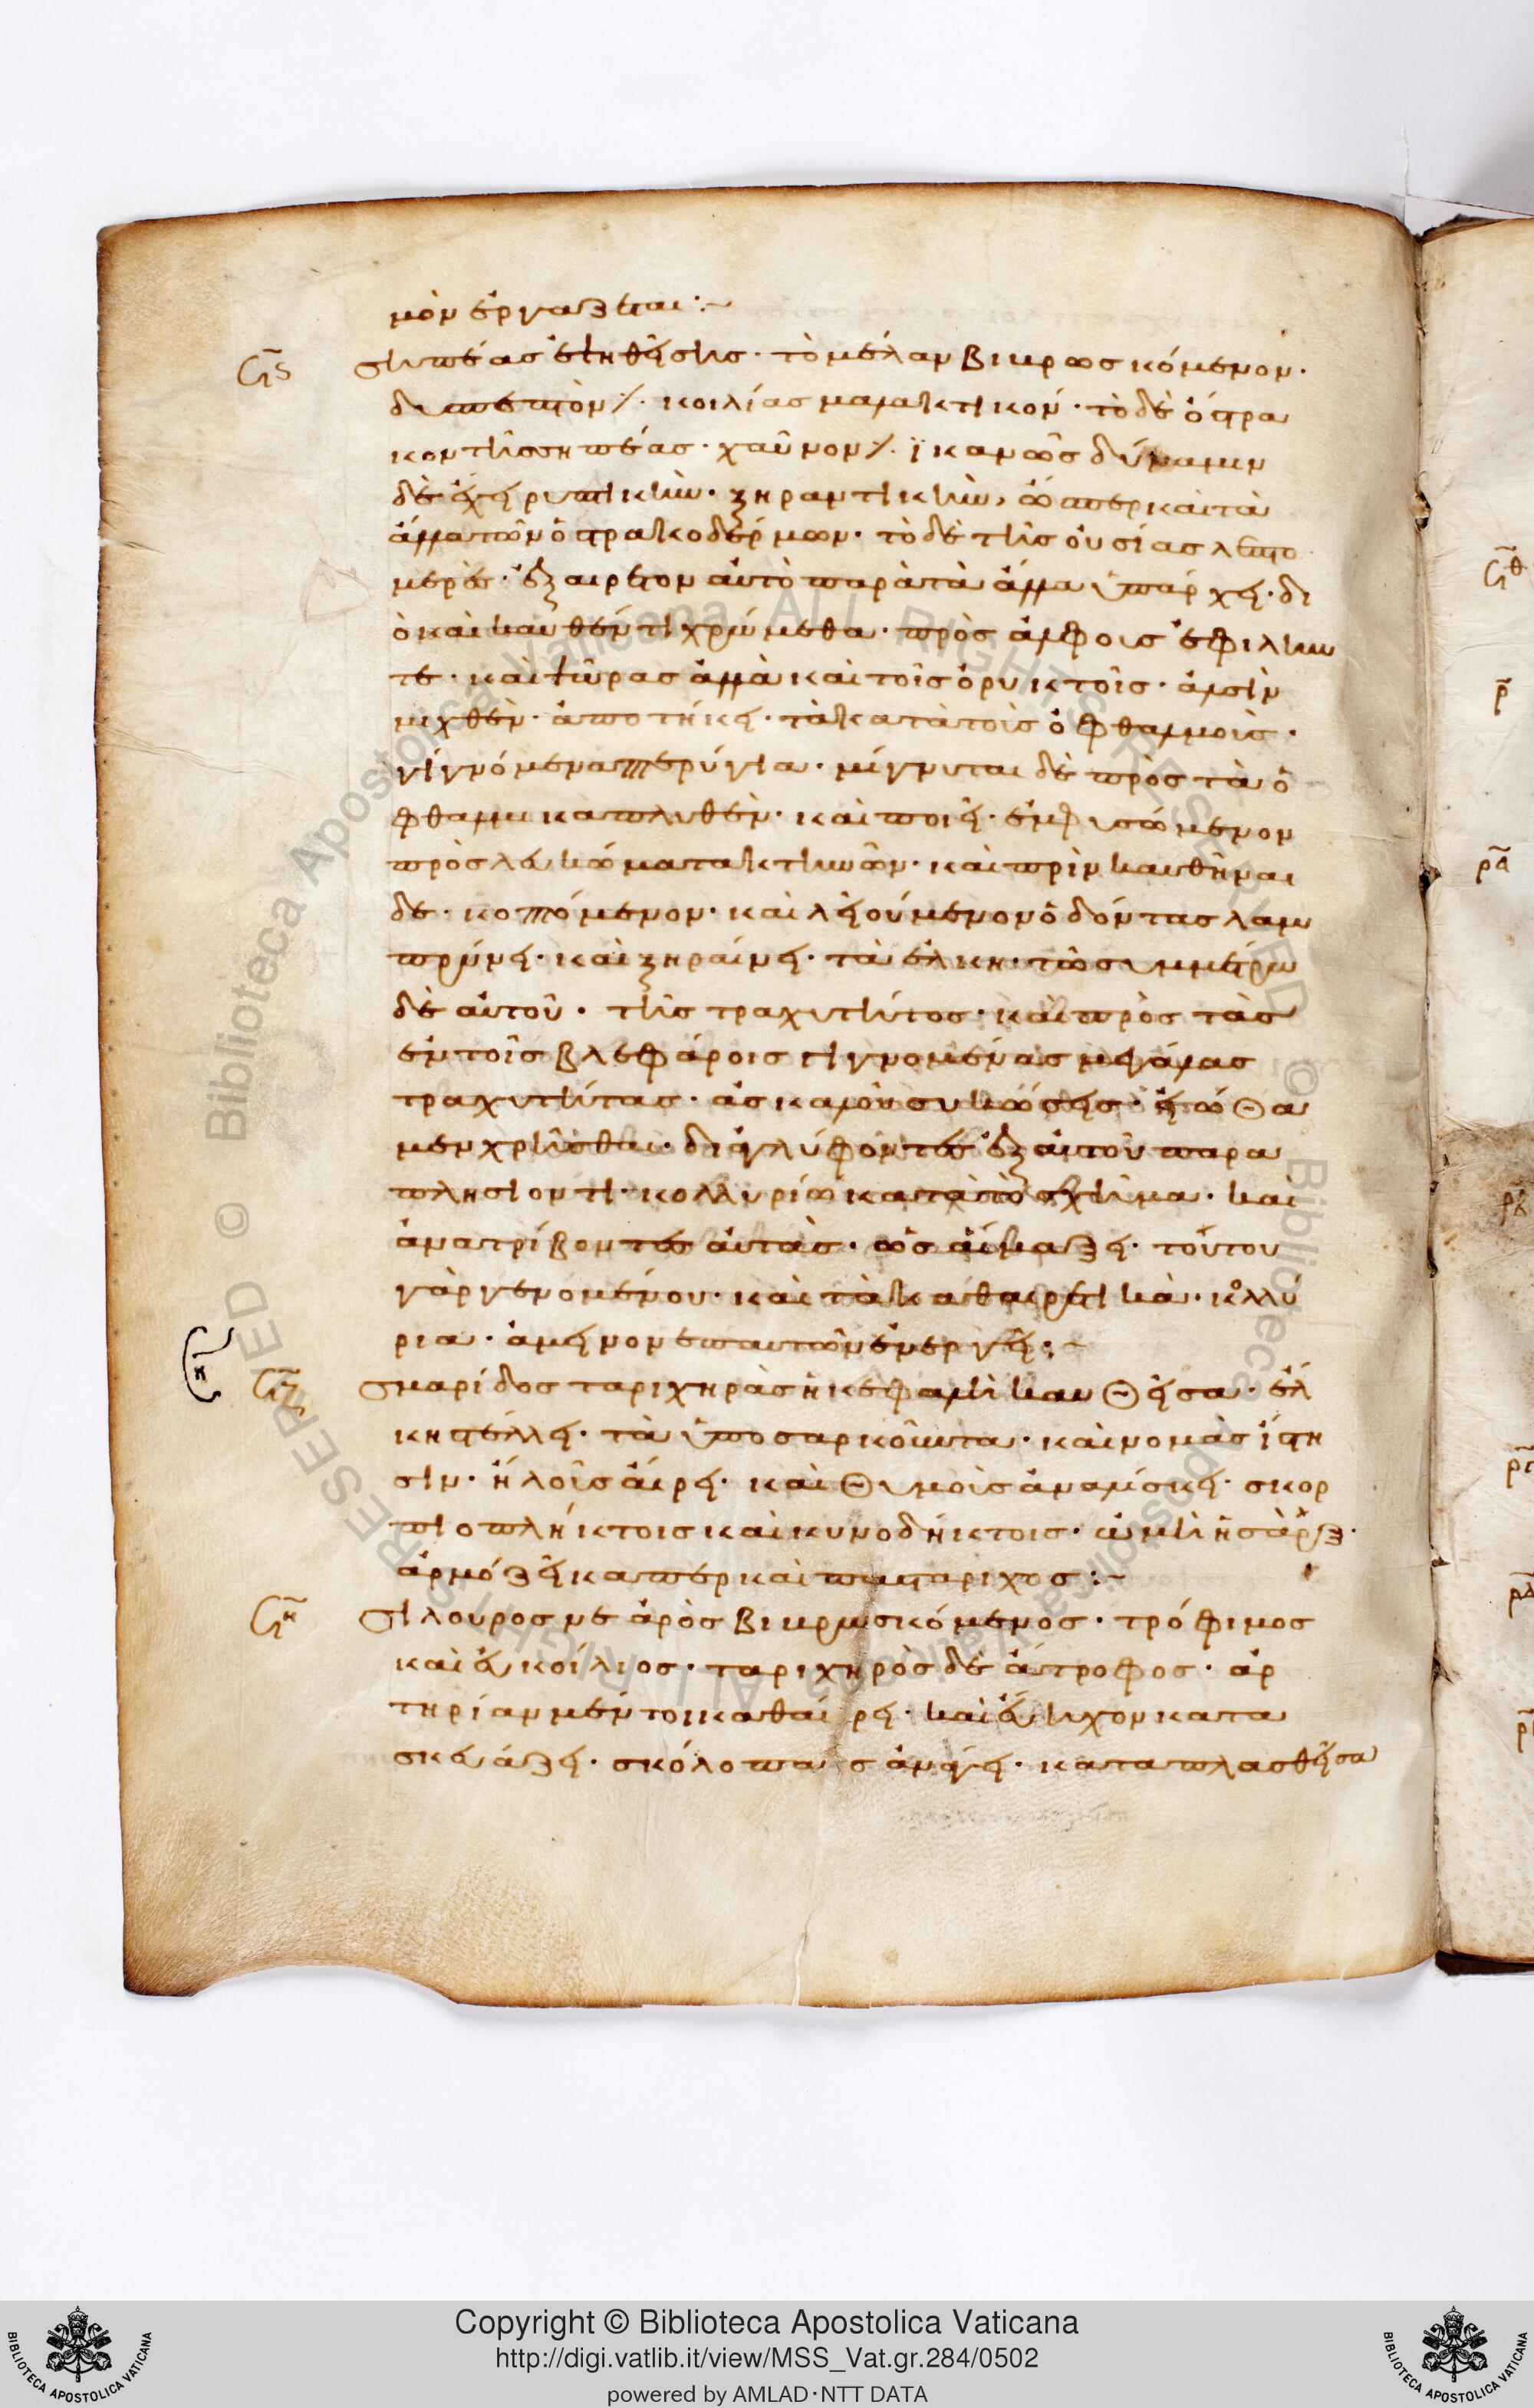 μὸν ἐργάζεται :~
Ϟϛ σηπέας ἑψηθείσης · τὸ μέλαν βιβρωσκόμενον ·
δύσπεπτον · κοιλίας μαλακτικόν · τὸ δὲ ὄστρα
κον τῆς σηπέας · χαῦνον ἱκανῶς δύναμιν
δὲ ἔχει ῥυπτικὴν · ξηραντικὴν, ὥσπερ καὶ τὰ
ἄλλα τῶν ὀστρακοδέρμων · τὸ δὲ τῆς οὐσίας λεπτο
μερὲς · ἐξαίρετον αὐτὸ παρὰ τὰ ἄλλα ὑπάρχει · δι
ὸ καὶ καυθέντι χρώμεθα · πρὸς ἀλφοὺς ἐφήλεις
τε · καὶ ψώρας ἀλλὰ καὶ τοῖς ὀρυκτοῖς · ἁλσὶν
μιχθὲν · ἀποτήκει · τὰ κατὰ τοὺς ὀφθαλμοὺς ·
γιγνόμενα πτερύγια · μίγνυται δὲ πρὸς τὰ ὀ
φθαλμικὰ πλυθὲν · καὶ ποιεῖ · ἐμφυσώμενον
πρὸς λευκώματα κτηνῶν · καὶ πρὶν καυθῆναι
δε · κοπτόμενον · καὶ λειούμενον ὀδόντας λαμ
πρύνει · καὶ ξηραίνει · τὰ ἕλκη · τῷ συμμέτρῳ
δὲ αὐτοῦ · τῆς τραχύτητος · καὶ πρὸς τὰς
ἐν τοῖς βλεφάροις γιγνομένας μεγάλας
τραχύτητας · ἃς καλοῦσι συκώσεις · εἰώθα
μεν χρῆσθαι · διαγλύφοντες ἐξ αὐτοῦ παρα
πλήσιόν τι · κολλυρίῳ κατὰ τὸ σχῆμα · καὶ
ἀνατρίβοντες αὐτὰς · ὡς αἱμάξει · τούτου
γὰρ γενομένου · καὶ τὰ καθαιρετικὰ · κολλύ
ρια · ἄμεινον ἐπ αὐτῶν ἐνεργεῖ :~
Ϟζ σμαρίδος ταριχηρᾶς ἡ κεφαλὴ καυθεῖσα · ἕλ
κη στέλλει · τὰ ὑπερσαρκοῦντα · καὶ νομὰς ἵστη
σιν · ἥλους αἴρει · καὶ θύμους ἀναλίσκει · σκορ
πιοπλήκτοις καὶ κυνοδήκτοις · ὠμὴ ἡ σὰρξ ·
ἁρμόζει καθάπερ καὶ πᾶν τάριχος :~
Ϟη Σίλουρος νεαρὸς βιβρωσκόμενος · τρόφιμος
καὶ εὐκοίλιος · ταριχηρὸς δὲ ἄτροφος · ἀρ
τηρίαν μέντοι καθαίρει · καὶ εὔηχον κατα
σκευάζει · σκόλοπας ἀνάγει · καταπλασθεῖσα
Copyright © Biblioteca Apostolica Vaticana
http://digi.vatlib.it/view/MSS_Vat.gr.284/0502
powered by AMLAD·NTT DATA